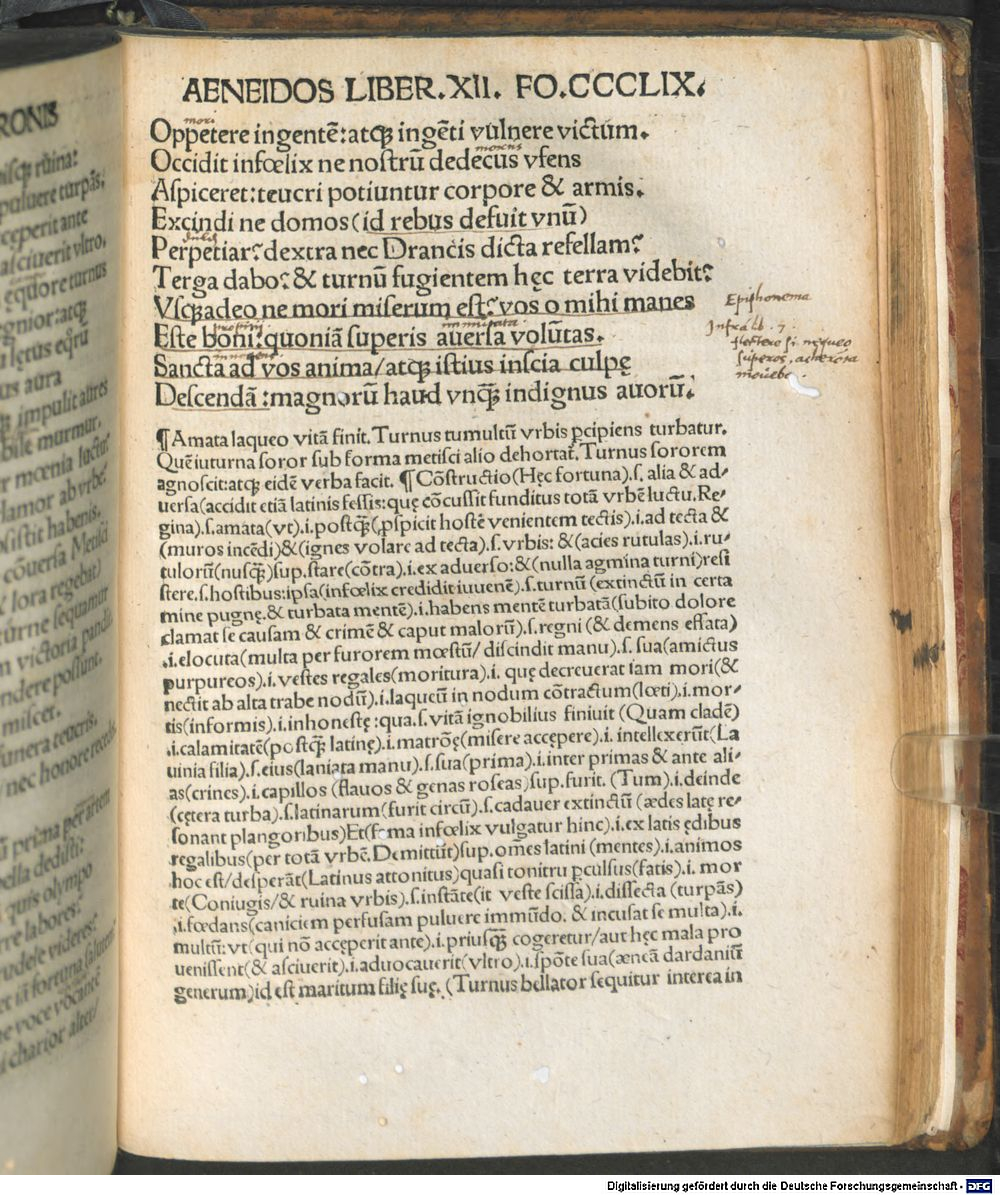 RONIS
puluere turpās:
ceperit ante
asciuerit vltro.
equore turnus
egnior:atq̄
us aura
impulit aures
murmur.
mœnia luctu:
clamor ab vrbe:
sistit habenis.
cōuersa Metisci
lora regebat)
turne sequamur
victoria pandit
ndere possunt.
miscet.
funera teucris.
nec honore recedes.
prima per artem
bella dedisti:
quis olympo
rre labores:
rudele videres:
AENEIDOS LIBER.XII. FO.CCCLIX.
mori
Oppetere ingentē:atq̄ ingēti vulnere victum.
Occidit infœlix ne nostrū dedecus vfens
Aspiceret:teucri potiuntur corpore & armis.
Excindi ne domos(id rebus defuit vnū)
Perpetiar?dextra nec Drancis dicta refellam?
Terga dabo?& turnū fugientem hęc terra videbit?
Vsq̄adeo ne mori miserum est?vos o mihi manes
Este boni:quoniā superis auersa volūtas.
Sancta ad vos anima/atq̄ istius inscia culpę
Descendā:magnorū haud vnq̄ indignus auorū.
Epiphonema
Infra lib. 7
flectere si nequeo
superos, acheronta
mouebo.
¶Amata laqueo vitā finit.Turnus tumultū vrbis p̱cipiens turbatur.
Quē iuturna soror sub forma metisci alio dehortat̄.Turnus sororem
agnoscit:atq̄ eidē verba facit. ¶Cōstructio(Hęc fortuna).s.alia & ad-
uersa(accidit etiā latinis fessis:quę cōcussit funditus totā vrbē luctu.Re-
gina).s.amata(vt).i.postq̄(p̱spicit hostē venientem tectis).i.ad tecta &
(muros incēdi)&(ignes volare ad tecta).s.vrbis: &(acies rutulas).i.ru-
tulorū(nusq̄)sup.stare(cōtra).i.ex aduerso:&(nulla agmina turni)resi
stere.s.hostibus:ipsa(infœlix credidit iuuenē).s.turnū(extinctū in certa
mine pugnę.& turbata mentē).i.habens mentē turbatā(subito dolore
clamat se causam & crimē & caput malorū).s.regni (& demens effata)
.i.elocuta(multa per furorem mœstū/ discindit manu).s.sua(amictus
purpureos).i.vestes regales(moritura).i. quę decreuerat iam mori(&
nectit ab alta trabe nodū).i.laqueū in nodum cōtractum(lœti).i.mor-
tis(informis).i.inhonestę:qua.s.vitā ignobilius finiuit (Quam cladē)
.i.calamitatē(postq̄ latinę).i.matrōę(misere accępere).i.intellexerūt(La
uinia filia).s.eius(laniata manu).s.sua(prima).i.inter primas & ante ali-
as(crines).i.capillos (flauos & genas roseas)sup.furit. (Tum).i.deinde
(cętera turba).s.latinarum(furit circū).s.cadauer extinctū (ædes latę re-
sonant plangoribus)Et(fama infœlix vulgatur hinc).i.ex latis ędibus
regalibus(per totā vrbē.Demittūt)sup.omēs latini (mentes).i.animos
hoc est/desperāt(Latinus attonitus)quasi tonitru p̱culsus(fatis).i.mor
te(Coniugis/& ruina vrbis).s.instāte(it veste scissa).i.dissecta (turpās)
.i.fœdans(caniciem perfusam puluere immūdo. & incusat se multa).i.
multū:vt(qui nō accęperit ante).i.priusq̄ cogeretur/aut hęc mala pro
uenissent(& asciuerit).i.aduocauerit(vltro).i.spōte sua(æneā dardaniū
generum)id est maritum filię suę. (Turnus bellator sequitur interea in
Digitalisierung gefördert durch die Deutsche Forschungsgemeinschaft - DFG